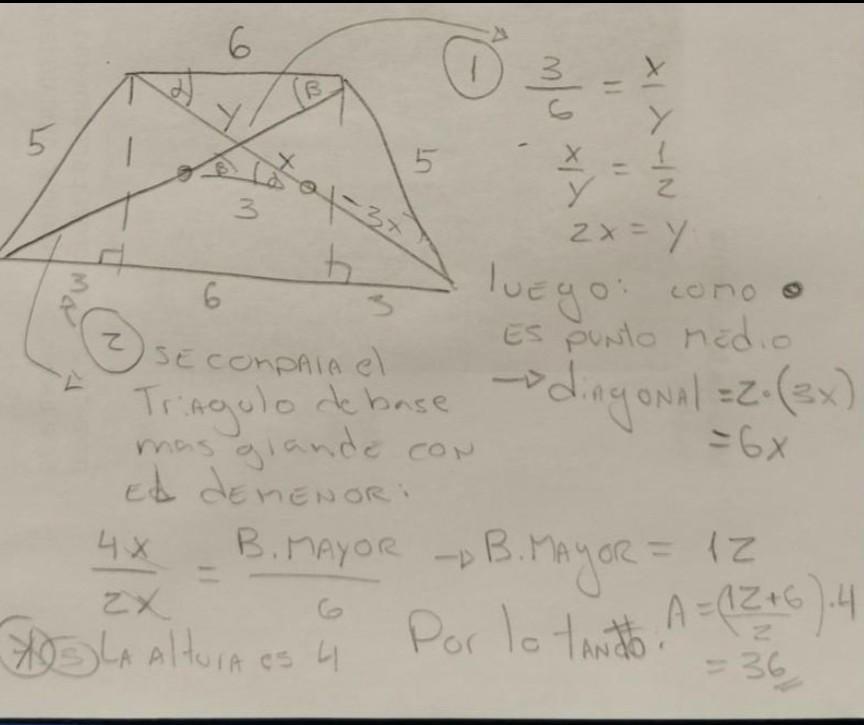 6
5
α
β
Y
X
5
β
α
3
3x
3
6
3
1
3/6 = X/Y
X/Y = 1/2
2X = Y
luego: como •
ES punto medio
→ diagonal = 2·(3X)
= 6X
2 SE compara el
Triagulo de base
mas grande con
EL DE MENOR:
4X/2X = B. MAYOR/6 → B. Mayor = 12
3 LA Altura es 4
Por lo tanto: A = (12+6/2)·4
= 36